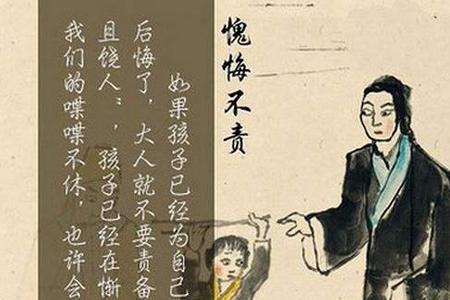 愧悔不责
如果孩子已经为自己
后悔了，大人就不要责备
且饶人”，孩子已经在惭
我们的喋喋不休，也许会